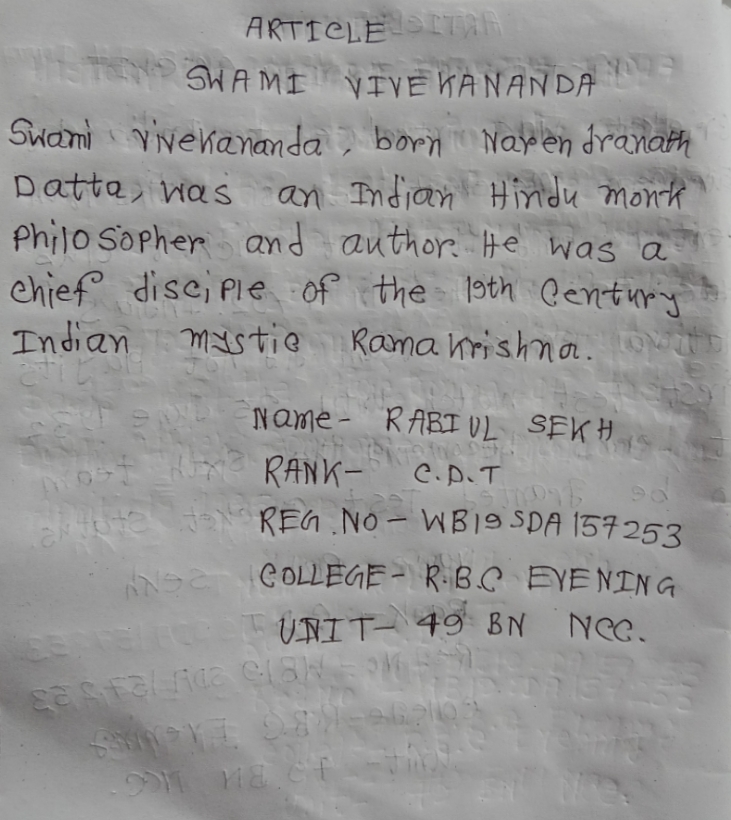 ARTICLE
SWAMI VIVEKANANDA
Swami Vivekananda, born Narendranath
Datta, was an Indian Hindu monk
Philosopher and author. He was a
chief disciple of the 19th Century
Indian mystic Ramakrishna.
Name- RABIUL SEKH
RANK- C.D.T
REG.NO- WB19SDA157253
COLLEGE- R.B.C EVENING
UNIT- 49 BN NCC.